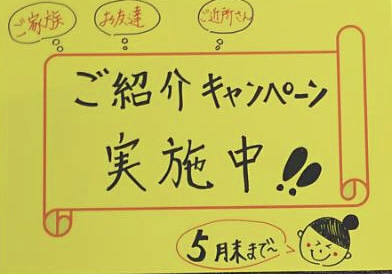 ご家族 お友達 ご近所さん
ご紹介キャンペーン
実施中!!
5月末まで〜